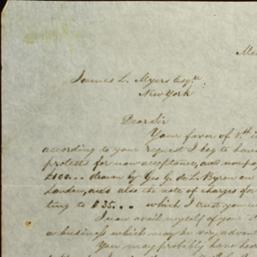 James L. Myers Esqr.
New York
Dear Sir
Your favor of 8th
according to your request I beg to have
protests for non acceptance and non pay
£100 .. drawn by Geo G. de L. Byron on
London, and also the note of charges for
ting to $35 ... which I trust you
I can avail myself of your
in business which may be very advan
You may probably have